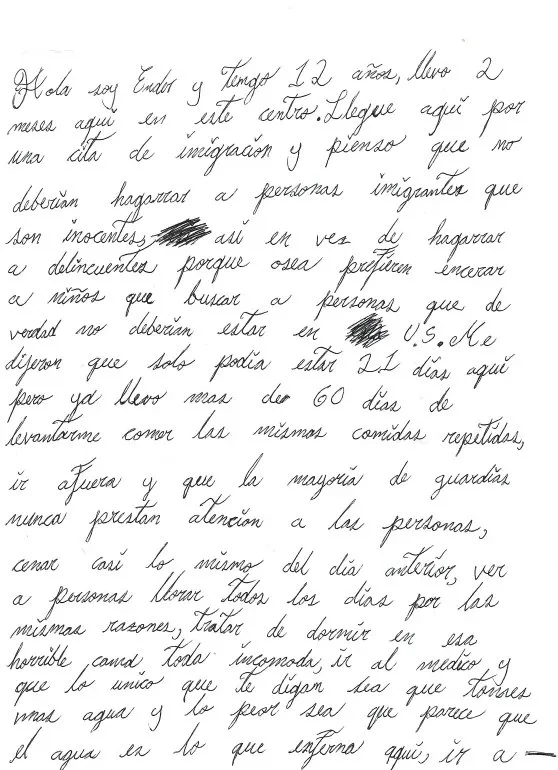 Hola soy Ender y tengo 12 años, llevo 2
meses aquí en este centro. Llegue aquí por
una cita de imigración y pienso que no
deberían hagarrar a personas imigrantes que
son inocentes, así en vez de hagarrar
a delincuentes porque osea prefieren encerar
a niños que buscar a personas que de
verdad no deberían estar en U.S. Me
dijeron que solo podía estar 21 días aquí
pero ya llevo mas de 60 días de
levantarme comer las mismas comidas repetidas,
ir afuera y que la mayoría de guardias
nunca prestan atencion a las personas,
cenar casi lo mismo del día anterior, ver
a personas llorar todos los días por las
mismas razones, tratar de dormir en esa
horrible cama toda incomoda, ir al medico y
que lo unico que te digan sea que tomes
mas agua y lo peor sea que parece que
el agua es lo que enferma aquí, ir a —